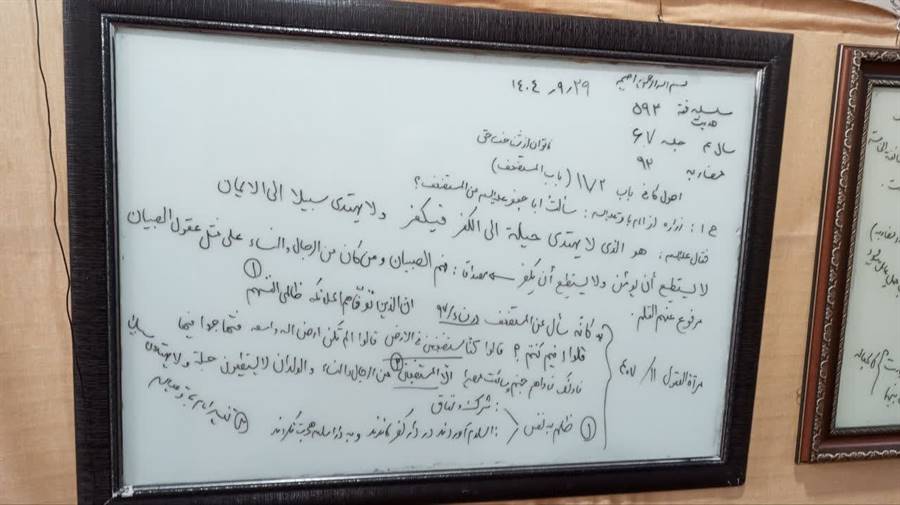 بسم الله الرحمن الرحیم
۱۴۰۴٫۹٫۲۹
سلسله فقه ۵۹۳
حدیث
سال ۳۰ جلسه ۶۷
حضاربه ۹۳
اصول کافی باب ۱۷۲ (باب المستضعف)
ح ۱ : زراره از امام باقر علیه السلام : سألت ابا جعفر علیه السلام عن المستضعف؟
فقال علیه السلام : هو الذی لا یهتدی حیلة الی الکفر فیکفر ولا یهتدی سبیلا الی الایمان
لا یستطیع أن یؤمن ولا یستطیع أن یکفر : فهم الصبیان و من کان من الرجال والنساء علی مثل عقول الصبیان
مرفوع عنهم القلم .
کأنه سأل عن المستضعف در نساء/۹۷ ان الذین توفّاهم الملائکة ظالمی انفسهم ①
مرآة العقول ۱۱/
قالوا فیم کنتم ؟ قالوا کنا مستضعفین فی الارض قالوا الم تکن ارض الله واسعة فتهاجروا فیها
فاولئک مأواهم جهنم و سائت مصیرا الّا المستضعفین ② من الرجال والنساء والولدان لا یستطیعون حیلة ولا یهتدون سبیلا
① ظلم به نفس : شرک و نفاق
: اسلام آوردند در دار کفر ماندند و به دار اسلام هجرت نکردند
② تفسیر امام باقر علیه السلام